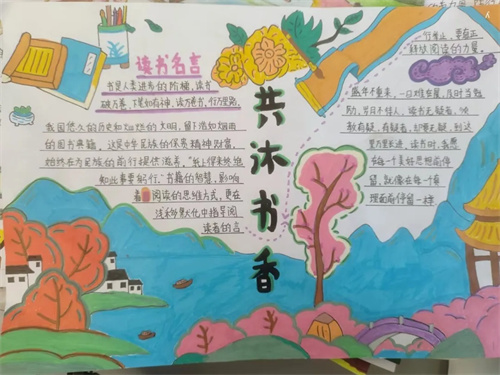 读书名言
书是人类进步的阶梯，读书
破万卷，下笔如有神，读万卷书，行万里路。
我国悠久的历史和灿烂的文明，留下浩如烟海
的图书典籍，这是中华民族的优秀精神财富，
始终在为民族的前行提供滋养。"纸上得来终觉浅
知此事要躬行。"书籍的智慧，影响
着 阅读的思维方式，更在
浅移默化中指导阅
读者的言
共沐书香
行举止，要真正
释放阅读的力量。
盛年不重来，一日难再晨，及时当勉
励，岁月不待人，读书无疑者，须
教有疑，有疑者，却要无疑，到这
里方是长进，读书时，我愿
在每一个美好思想前停
留，就像在每一个真
理面前停留一样